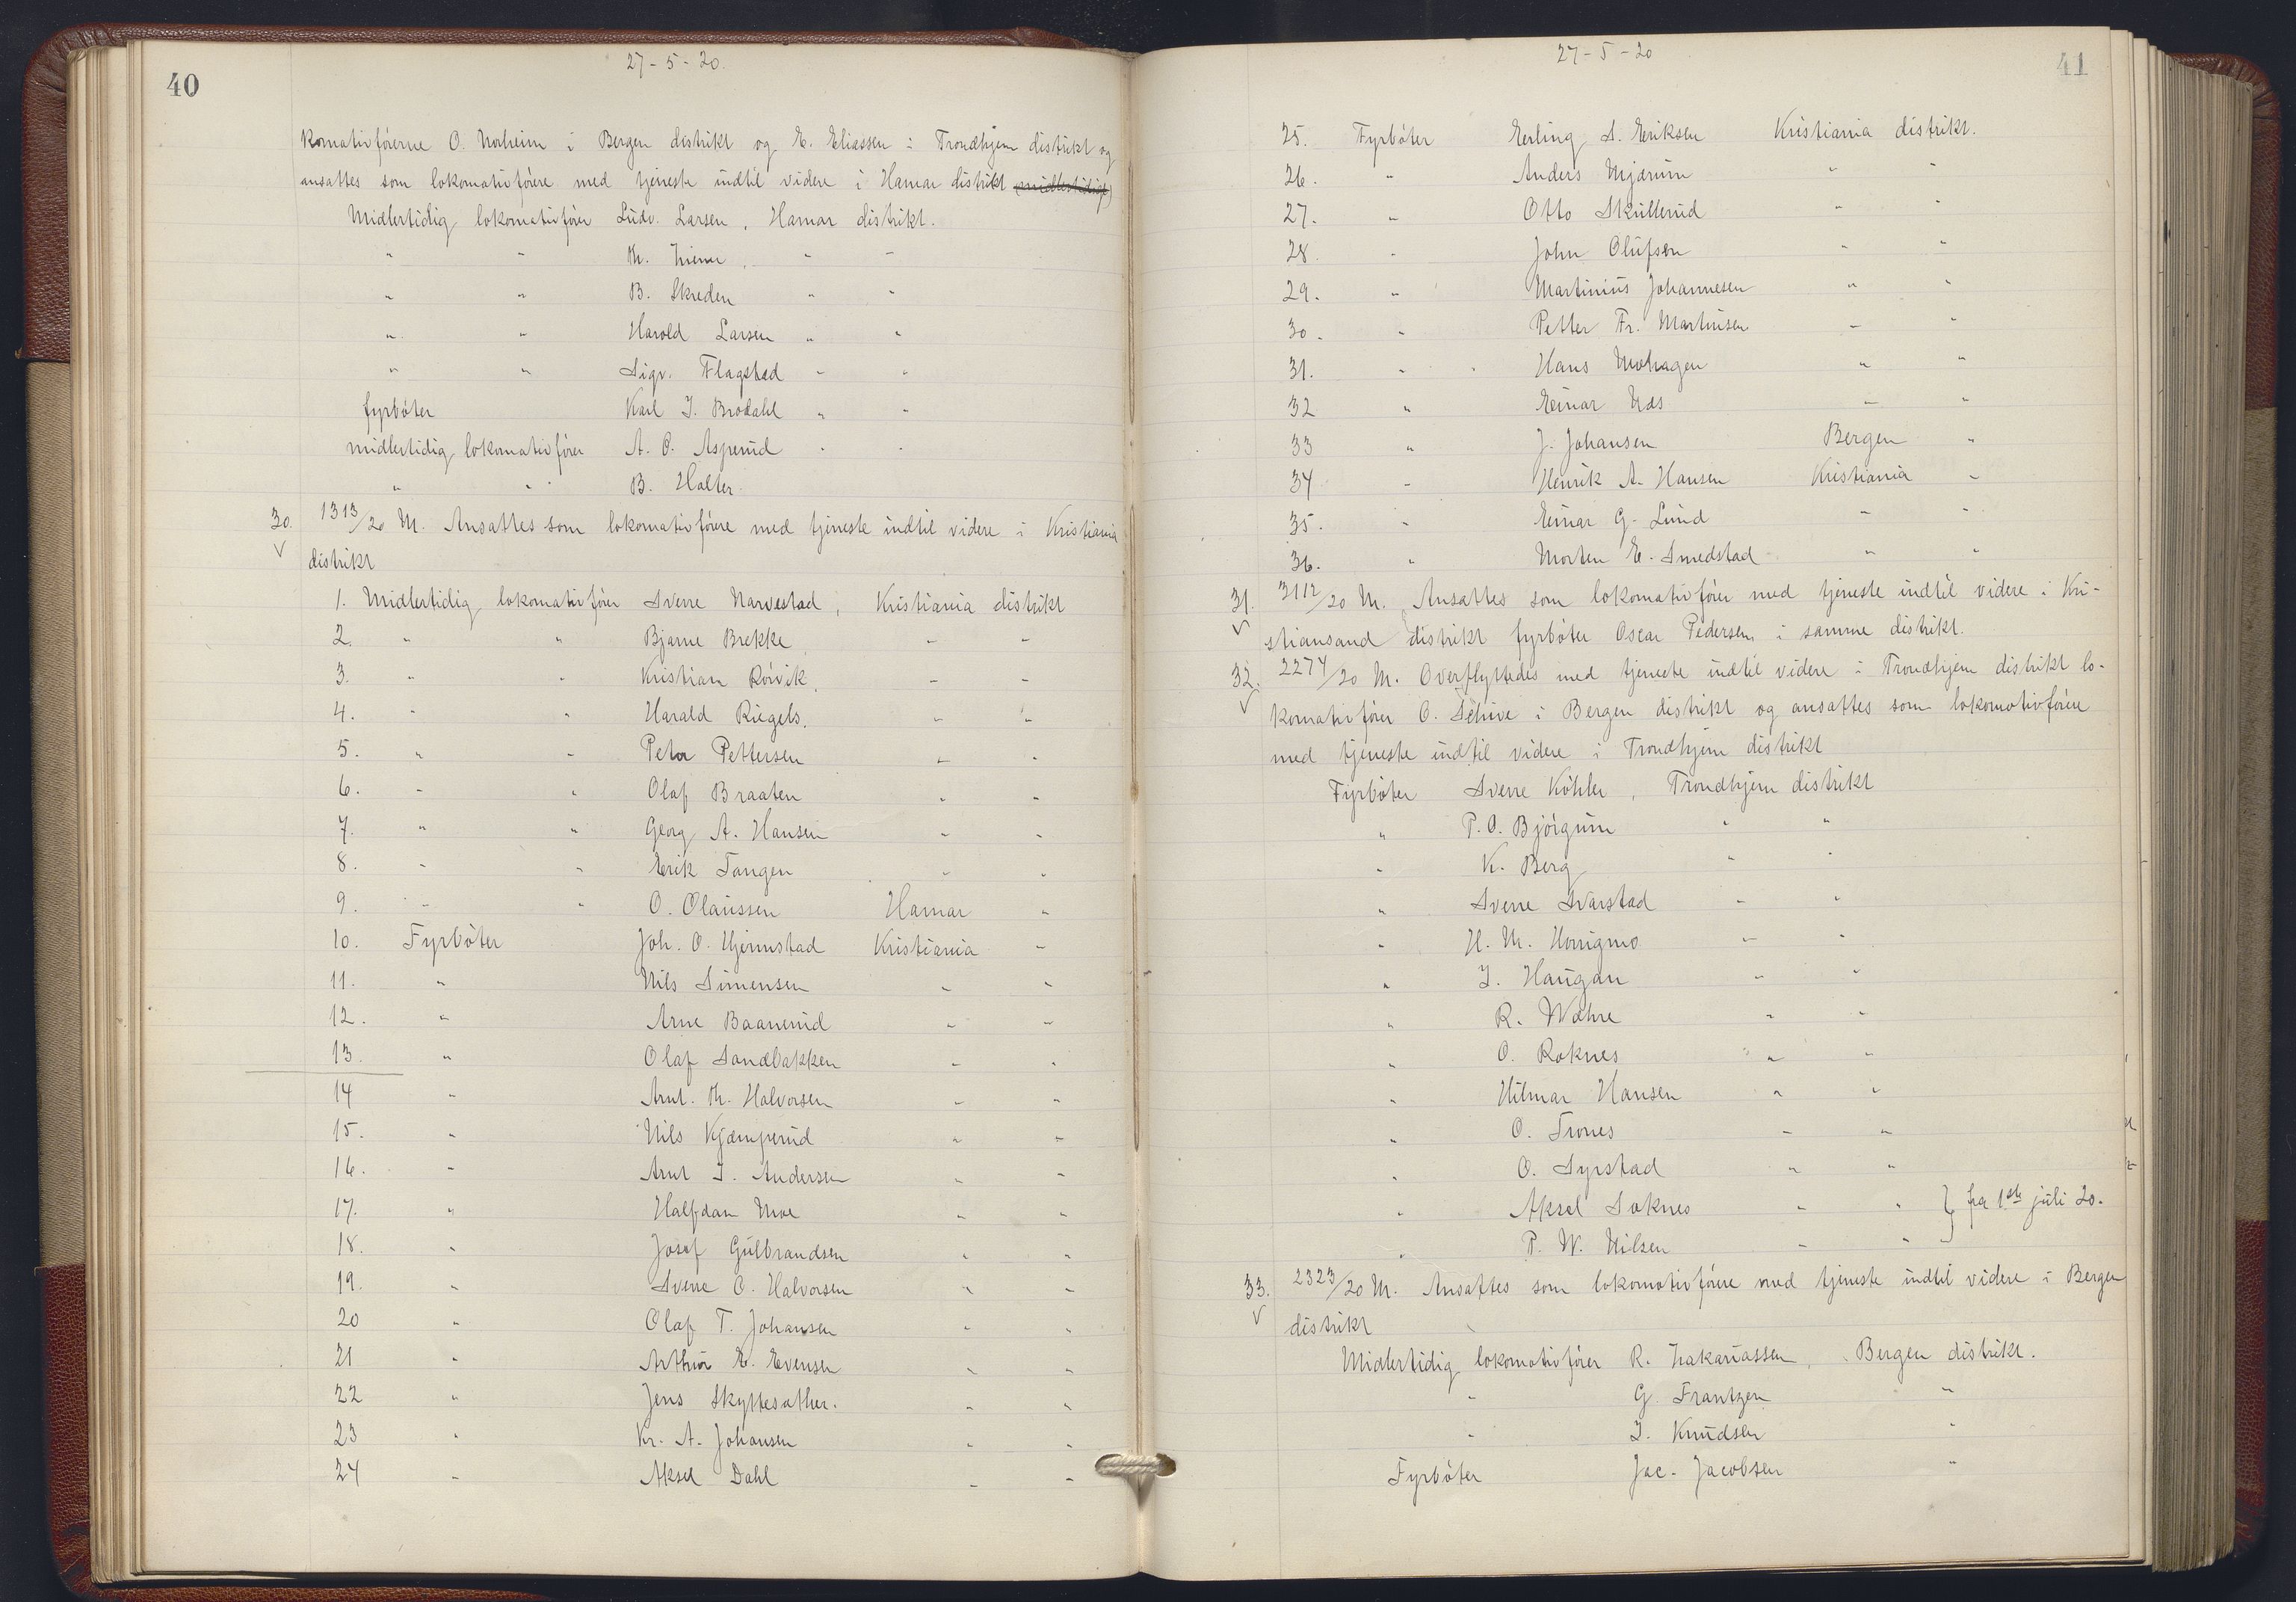 40
27-5-20.
komotivførerne O. Norheim i Bergen distrikt og E. Eliassen i Trondhjem distrikt og
ansattes som lokomotivførere med tjeneste indtil videre i Hamar distrikt (midlertidige)
Midlertidig lokomotivfører Ludv. Larsen, Hamar distrikt.
" " M. " "
" " B. Skreden " "
" " Harold Larsen " "
" " Sigv. Flagstad " "
fyrbøter Karl J. Brodahl " "
midlertidig lokomotivfører A. O. Asperud " "
" " B. Holter.
30. 1313/20 M. Ansattes som lokomotivførere med tjeneste indtil videre i Kristiania
distrikt
1. Midlertidig lokomotivfører Sverre Narvestad, Kristiania distrikt
2. " " Bjarne Brekke, " "
3. " " Kristian Rørvik, " "
4. " " Harald Riegels, " "
5. " " Peter Pettersen " "
6. " " Olaf Braaten " "
7. " " Georg A. Hansen " "
8. " " Erik Tangen " "
9. " " O. Olaussen Hamar "
10. Fyrbøter Joh. O. Hjermstad Kristiania "
11. " Nils Simensen " "
12. " Arne Baanerud " "
13. " Olaf Sandbakken " "
14 " Arnt. Th. Halvorsen " "
15. " Nils Kjæmperud " "
16. " Arnt J. Andersen " "
17. " Halfdan Moe " "
18. " Josef Gulbrandsen " "
19. " Sverre O. Halvorsen " "
20 " Olaf T. Johansen " "
21 " Arthur E. Evensen " "
22 " Jens Skyttesæther. " "
23 " Kr. A. Johansen " "
24 " Aksel Dahl " "
27-5-20
41
25. Fyrbøter Erling S. Eriksen Kristiania distrikt.
26. " Anders Mjærum " "
27. " Otto Skullerud " "
28. " John Olufsen " "
29. " Martinius Johannesen " "
30. " Petter Fr. Martinsen " "
31. " Hans Mohagen " "
32 " Einar Næs " "
33 " J. Johansen Bergen "
34 " Henrik A. Hansen Kristiania "
35. " Einar G. Lund " "
36. " Morten E. Smedstad " "
31. 3112/20 M. Ansattes som lokomotivfører med tjeneste indtil videre i Kri-
stiansand distrikt fyrbøter Oscar Pedersen i samme distrikt.
32. 2274/20 M. Overflyttedes med tjeneste indtil videre i Trondhjem distrikt lo-
komotivfører O. Schive i Bergen distrikt og ansattes som lokomotivførere
med tjeneste indtil videre i Trondhjem distrikt
Fyrbøter Sverre Köhler, Trondhjem distrikt
" P. O. Bjørgum " "
" K. Berg " "
" Sverre Svarstad " "
" H. M. " "
" J. Haugan " "
" R. Wahre " "
" O. Roknes " "
" Hilmar Hansen " "
" O. Trones " "
" O. Syrstad " "
" Aksel Soknes " " } fra 1ste juli 20.
" P. W. Nilsen " "
33. 2323/20 M. Ansattes som lokomotivførere med tjeneste indtil videre i Bergen
distrikt
Midlertidig lokomotivfører R. Zakariassen, Bergen distrikt.
" G. Frantzen "
" J. Knudsen "
Fyrbøter Jac. Jacobsen "